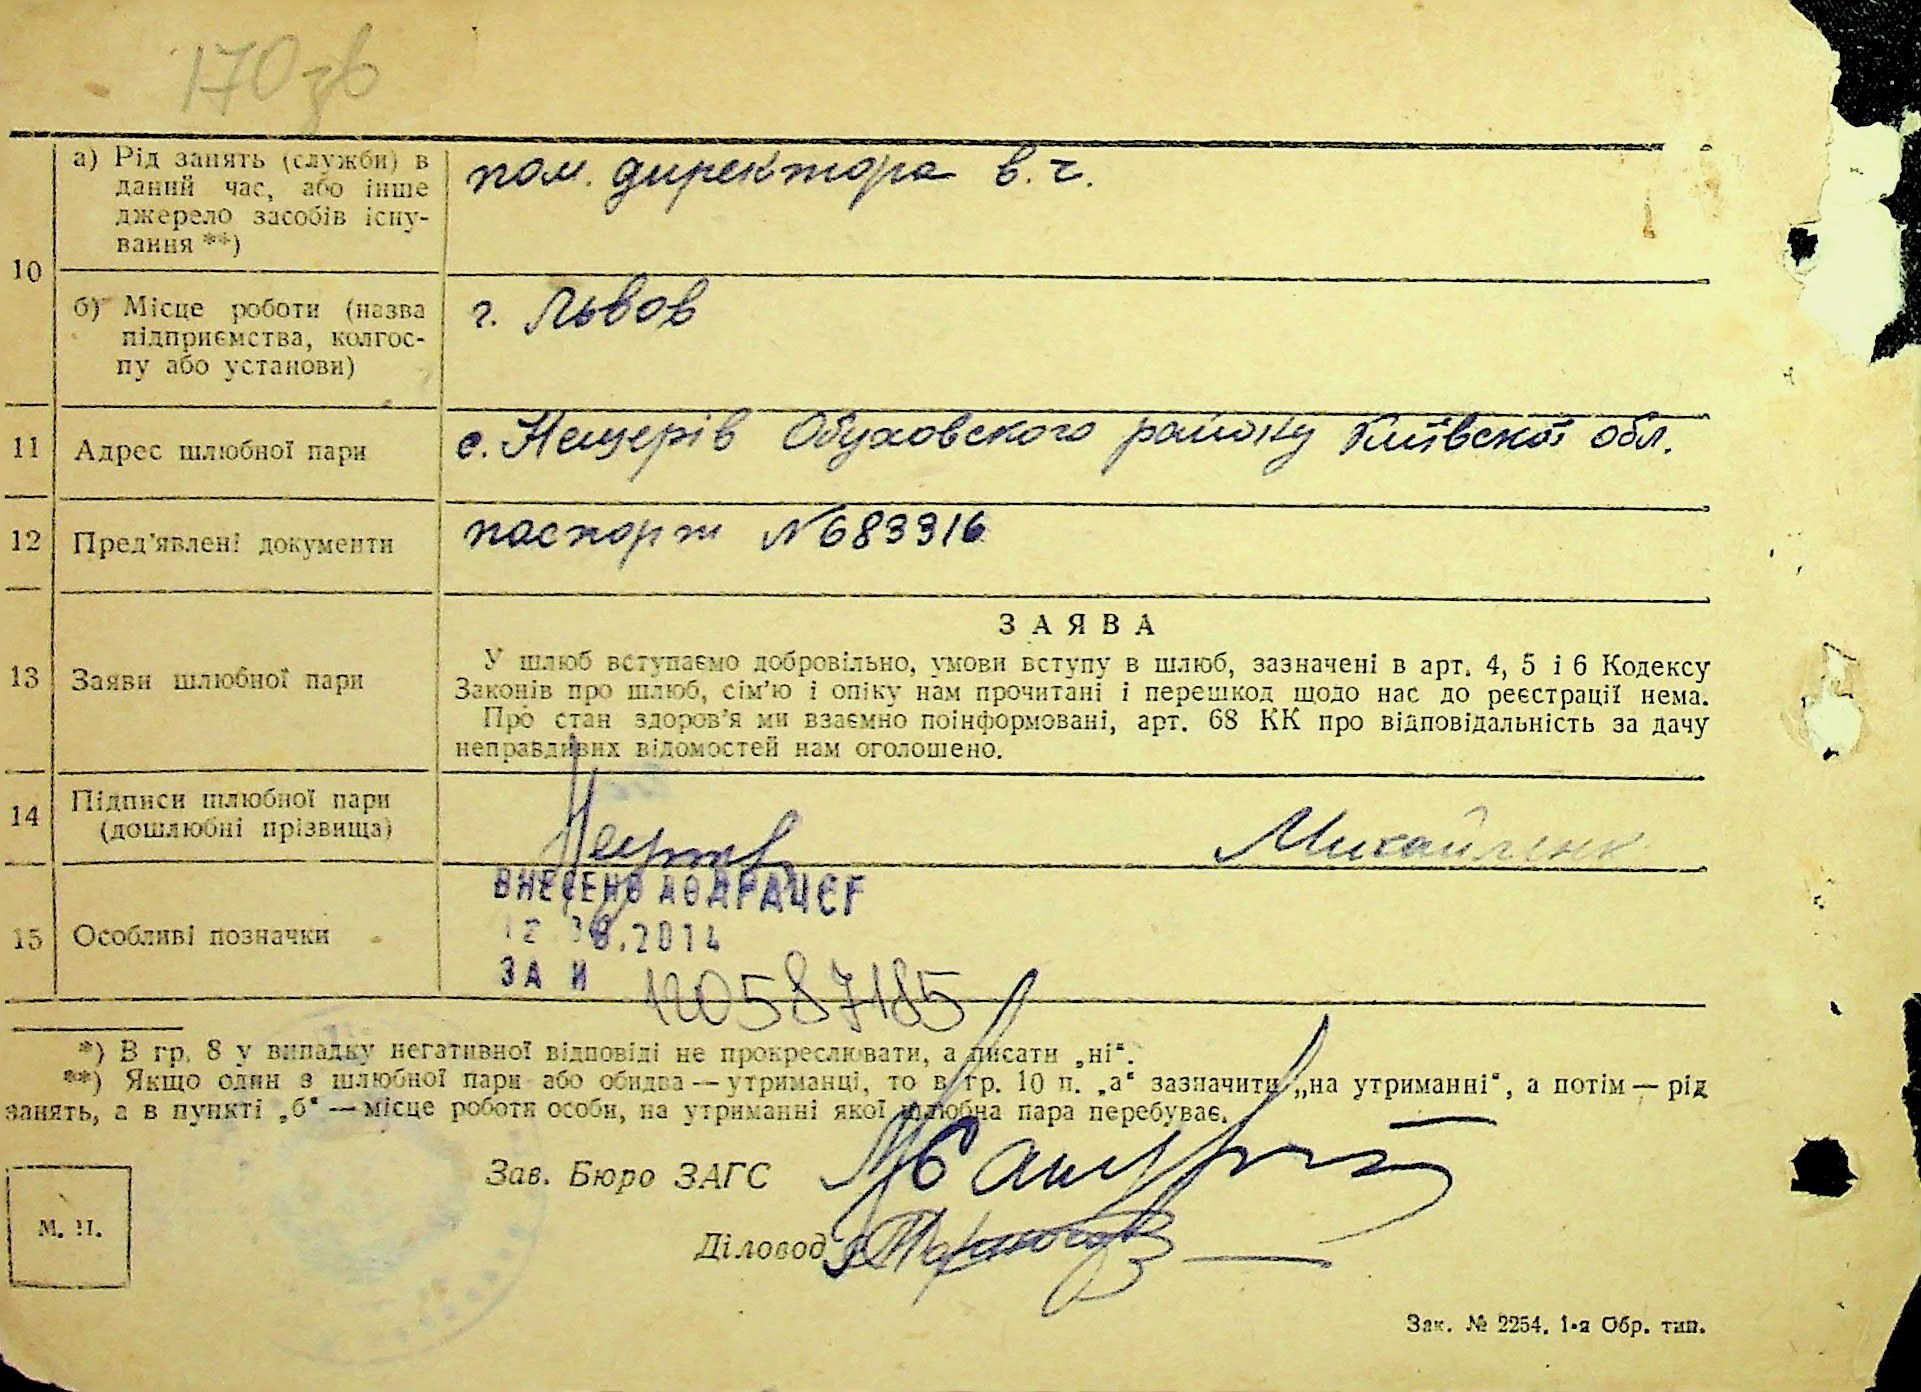 170зв
10
а) Рід занять (служби) в
даний час, або інше
джерело засобів існу-
вання **)
пом. директора в. г.
б) Місце роботи (назва
підприємства, колгос-
пу або установи)
г. Львов
11
Адрес шлюбної пари
с. Нещерів Обуховского району Київскої обл.
12
Пред'явлені документи
паспорт №683316
13
Заяви шлюбної пари
ЗАЯВА
У шлюб вступаємо добровільно, умови вступу в шлюб, зазначені в арт. 4, 5 і 6 Кодексу
Законів про шлюб, сім'ю і опіку нам прочитані і перешкод щодо нас до реєстрації нема.
Про стан здоров'я ми взаємно поінформовані, арт. 68 КК про відповідальність за дачу
неправдивих відомостей нам оголошено.
14
Підписи шлюбної пари
(дошлюбні прізвища)
Михайленк
15
Особливі позначки
ВНЕСЕНО ДО ДРАЦСГ
12 .2014
ЗА И 120587185
*) В гр. 8 у випадку негативної відповіді не прокреслювати, а писати „ні“.
**) Якщо один з шлюбної пари або обидва — утриманці, то в гр. 10 п. „а“ зазначити „на утриманні“, а потім — рід
занять, а в пункті „б“ — місце роботи особи, на утриманні якої шлюбна пара перебуває.
Зав. Бюро ЗАГС
М. П.
Діловод
Зак. № 2254. 1-а Обр. тип.